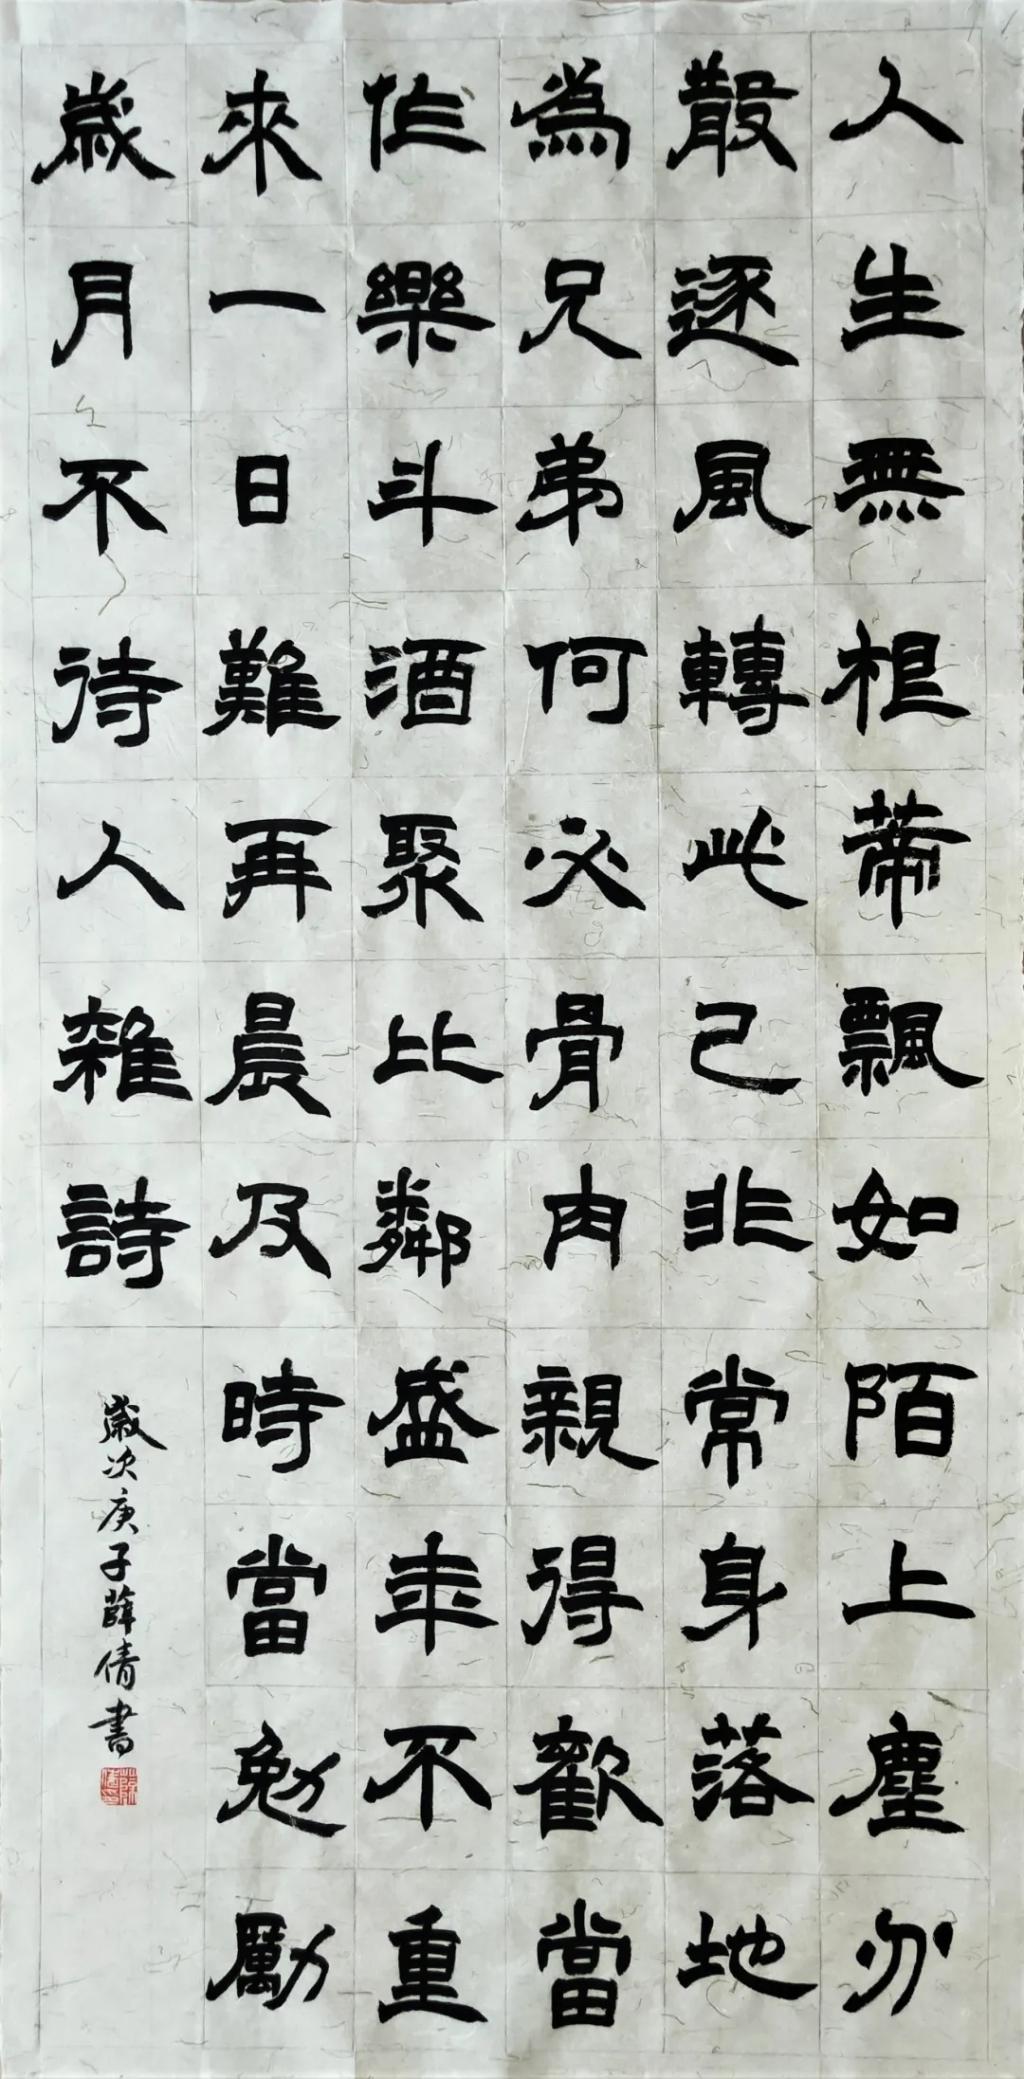 人生無根蒂飄如陌上塵分
散逐風轉此已非常身落地
為兄弟何必骨肉親得歡當
作樂斗酒聚比鄰盛年不重
來一日難再晨及時當勉勵
歲月不待人雜詩
歲次庚子薛倩書